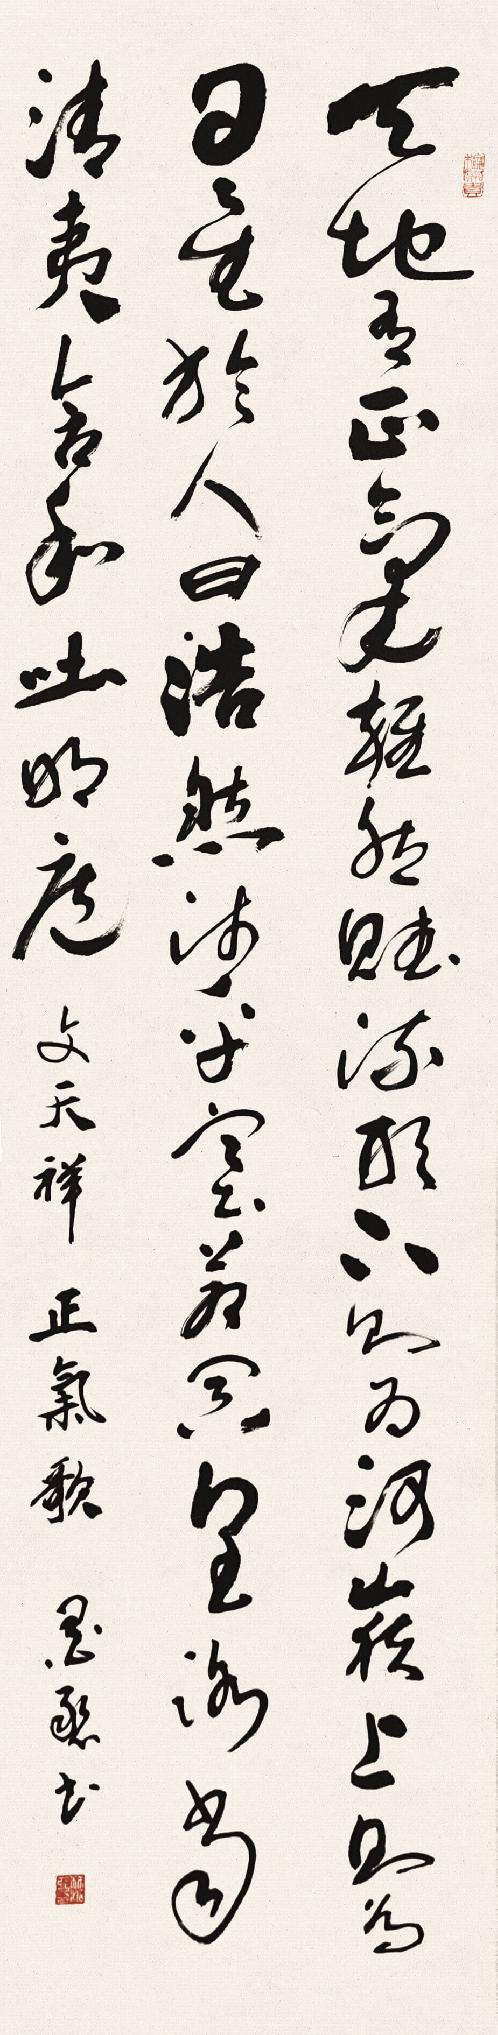 天地有正氣雜然賦流形下則為河嶽上則為
日星於人曰浩然沛乎塞蒼冥皇路當
清夷含和吐明庭 文天祥 正氣歌 書